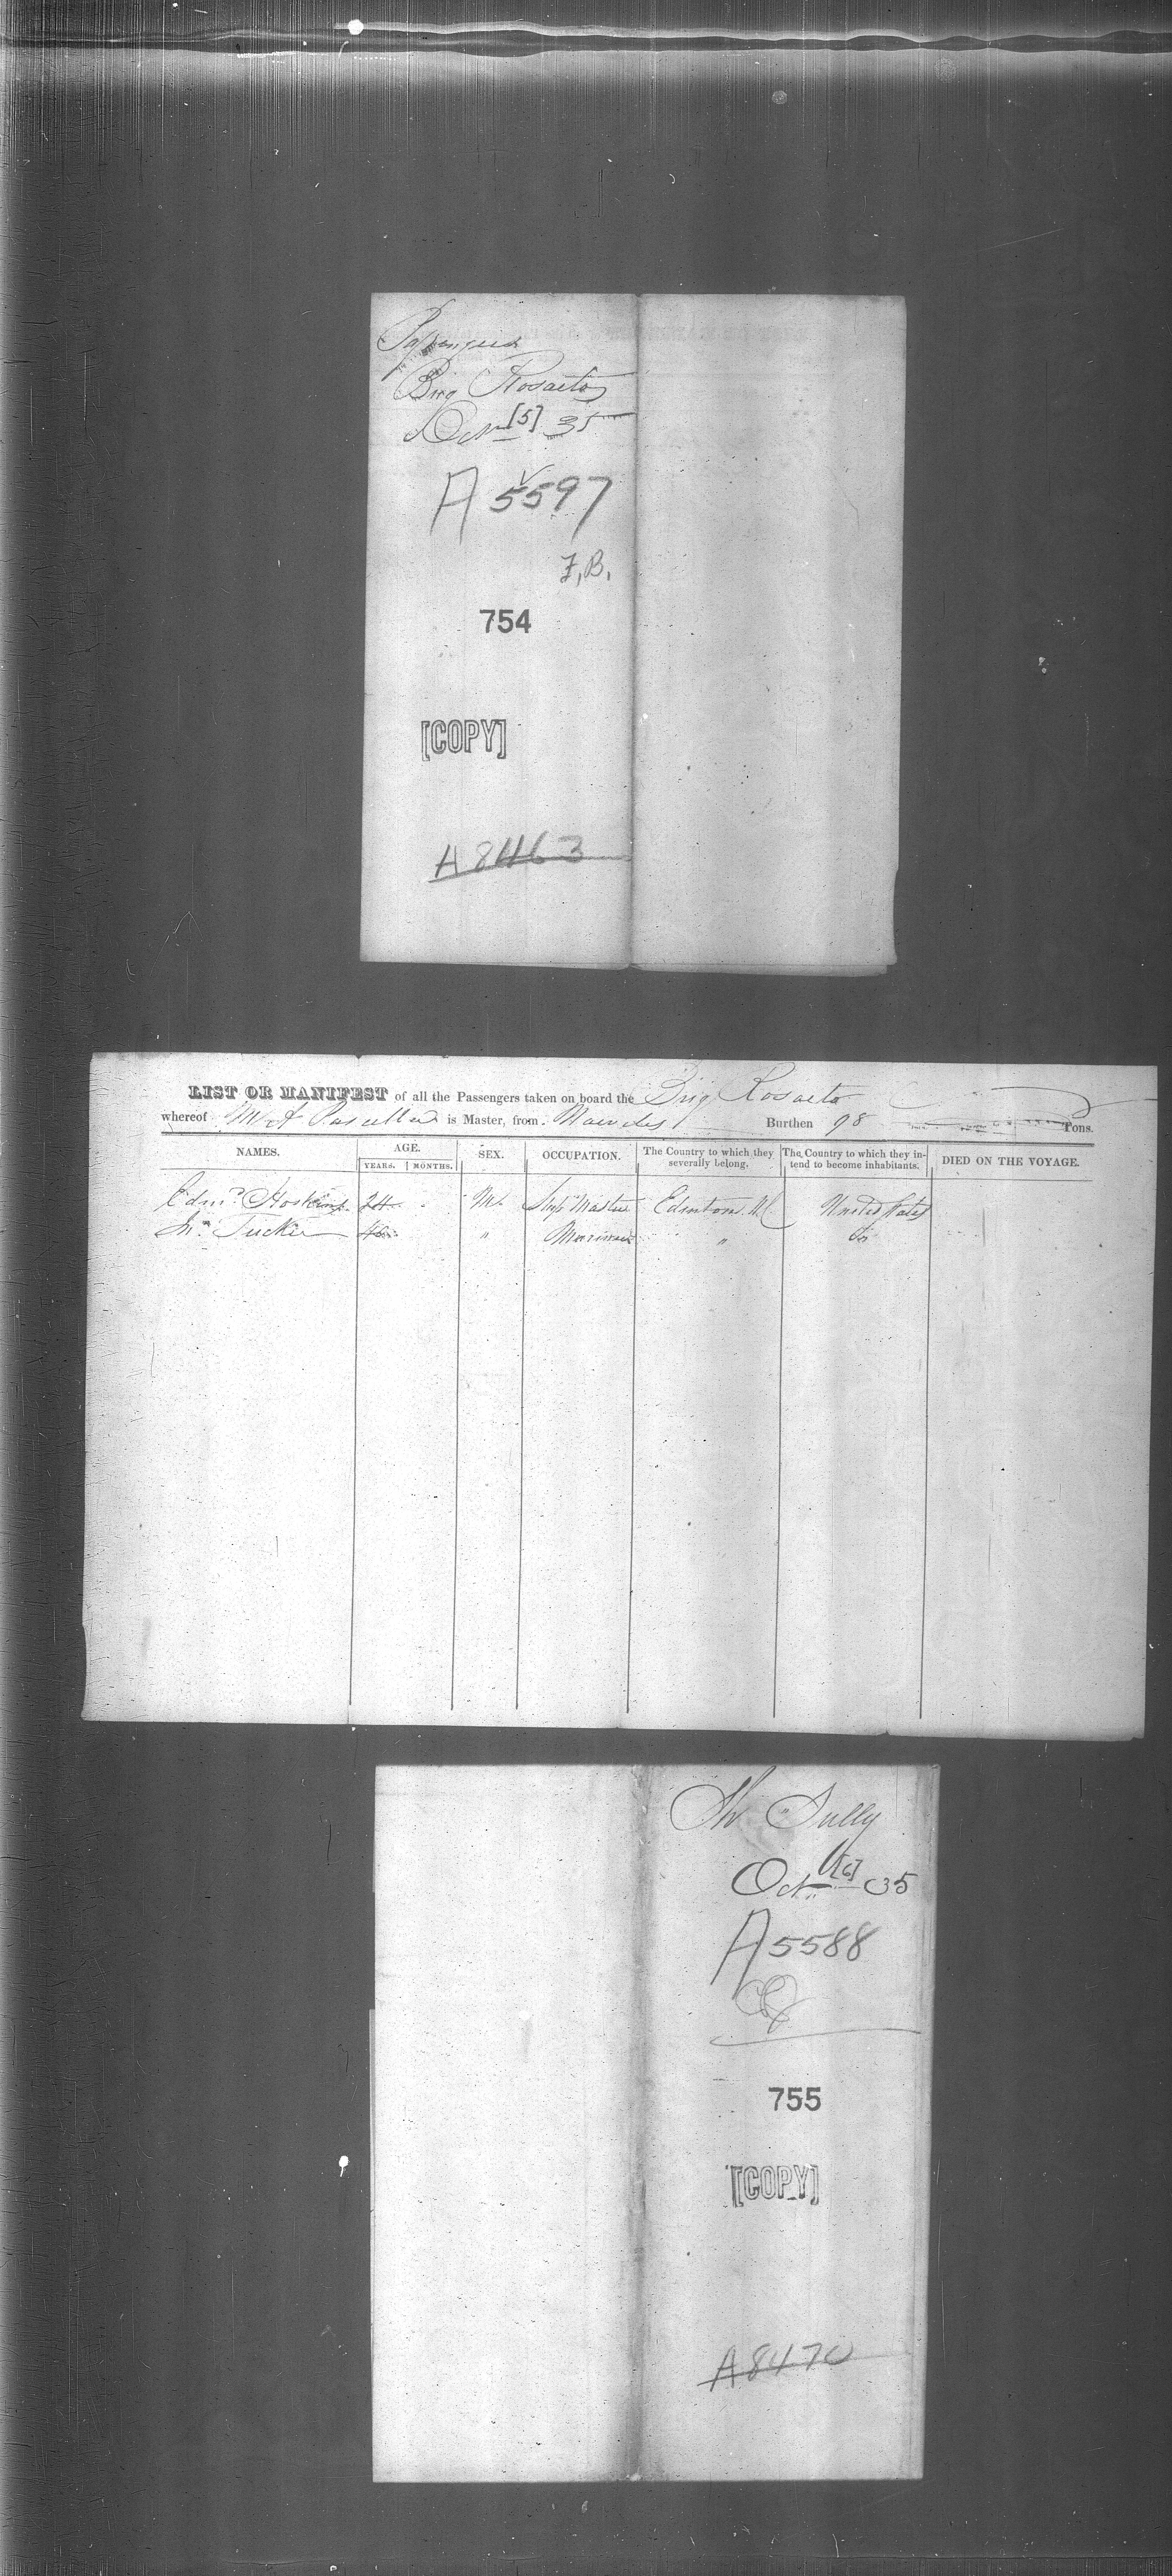 Passengers
Brig Rosaeto
Oct [5] 35
A 5597
F.B.
754
[COPY]
A 8463
LIST OR MANIFEST of all the Passengers taken on board the Brig Rosaeto
whereof is Master, from Burthen 98 Tons.
NAMES. AGE. SEX. OCCUPATION. The Country to which they severally belong. The Country to which they intend to become inhabitants. DIED ON THE VOYAGE.
YEARS. MONTHS.
Edmd. Hoskins 24 M. Ship Master Edenton N.C. United States
Jno. Tucker 40 " Mariner " Do
Sh Tully
Oct [6] 35
A 5588
755
[COPY]
A 8470